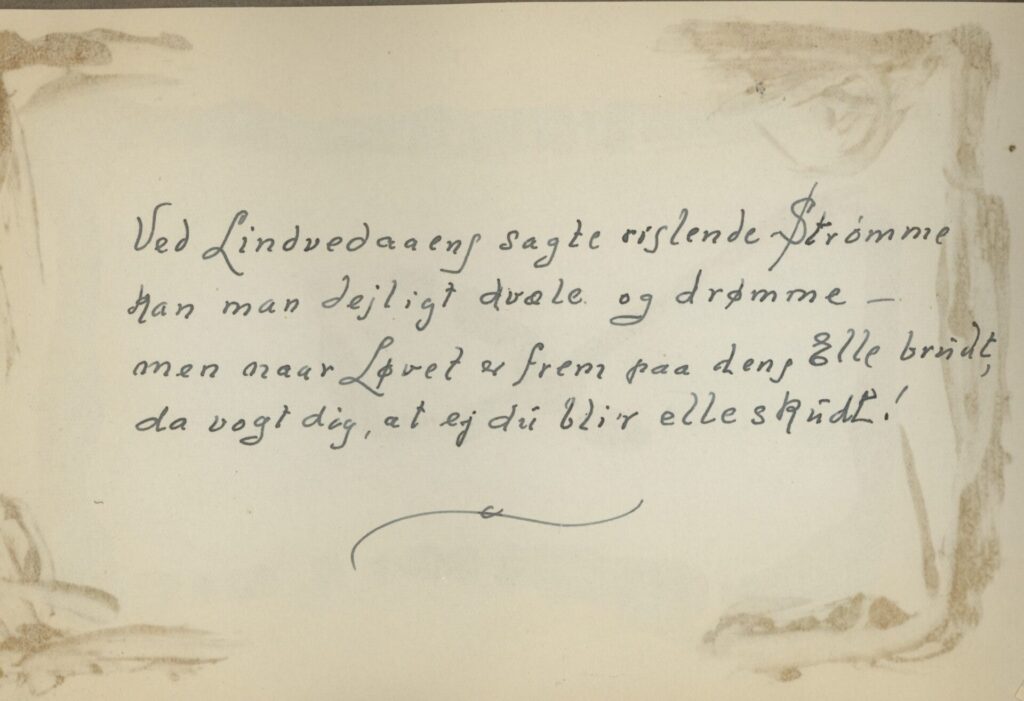 Ved Lindvedaaens sagte rislende Strømme
kan man dejligt dvæle og drømme —
men naar Løvet er frem paa dens Elle brudt,
da vogt dig, at ej du blir elleskudt!